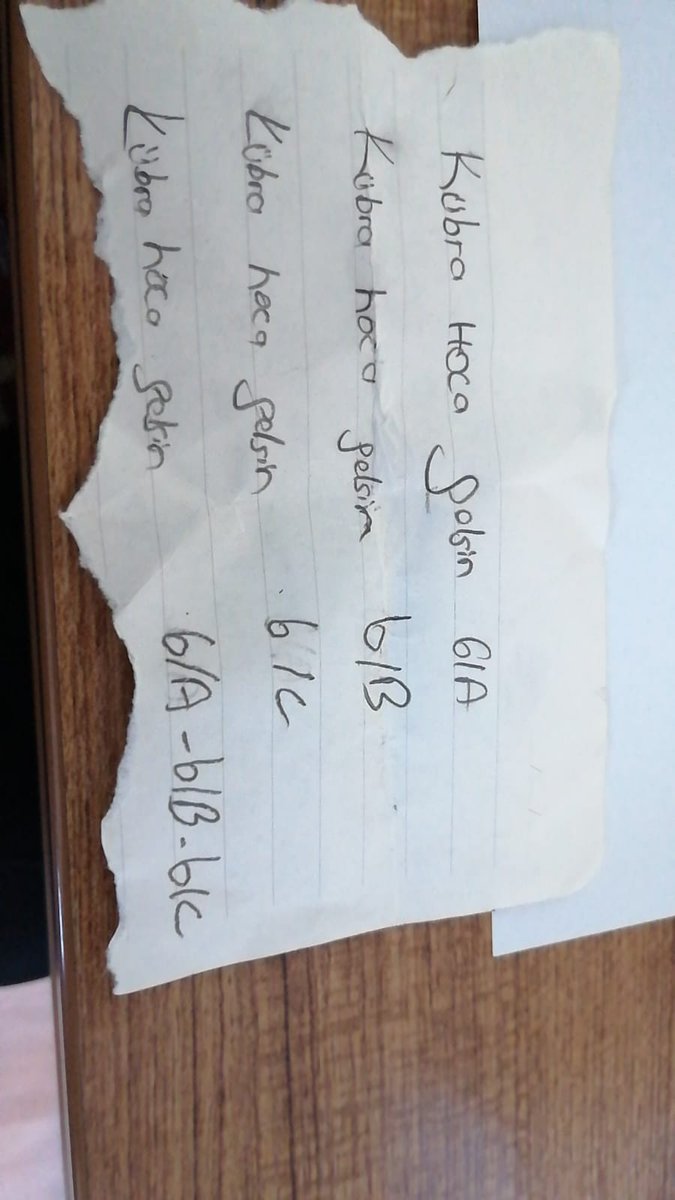 Kübra Hoca gelsin 6/A
Kübra hoca gelsin 6/B
Kübra hoca gelsin 6/C
Kübra hoca gelsin 6/A-6/B-6/C